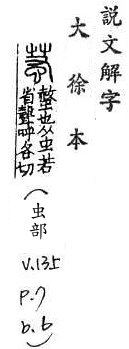 説文解字
大徐本
螫也从虫若
省聲呼各切
(虫部
V.13上
P.7
b.6)